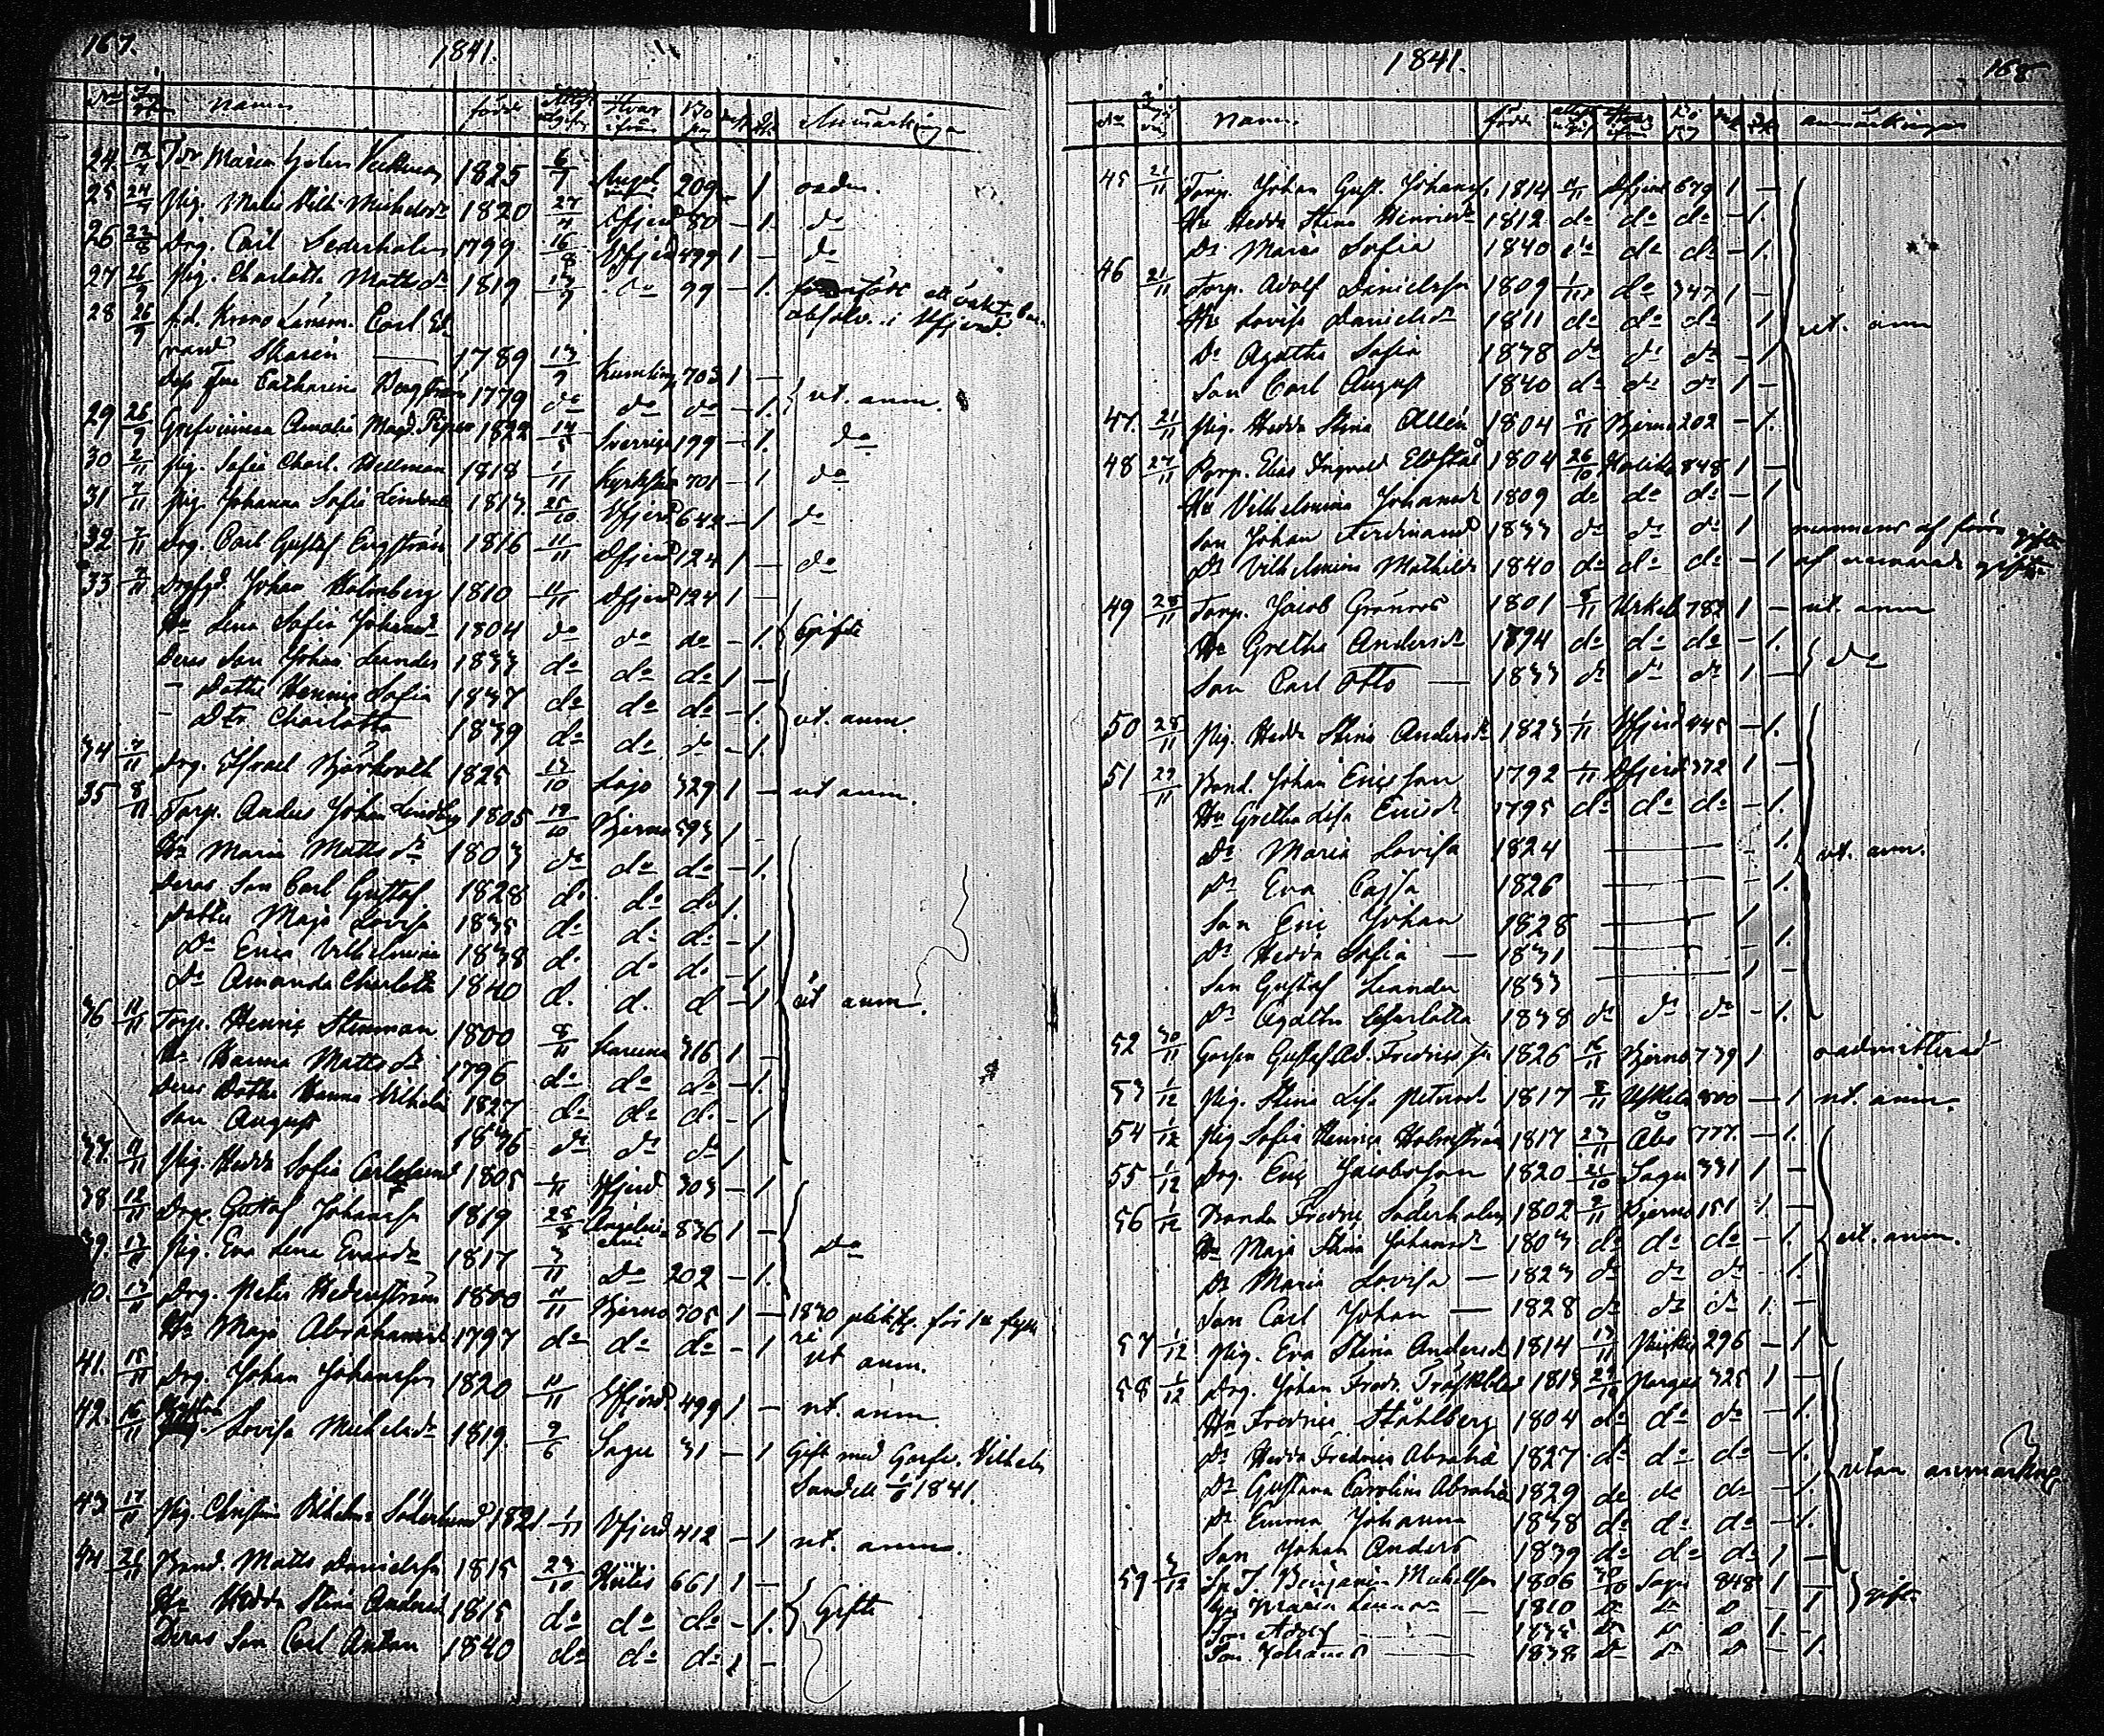 167. 1841.
Namn född Hvar ifrån Anmärkningar
24. Maria 1825 6/7 209 - 1.
25 24/4 Pig. Maria Vilh. Michelsdr 1820 27/4 80 - 1. do
26 22/8 Drg. Carl Sederholm 1799 16/8 499 1 - do
27 26/9 Pig. Charlotta Mattsdr 1819 13/9 do 99 - 1.
28 26/9 f.d. Krono Länsm. Carl Ed-
vard Skarin 1789 13/9 Kumlinge 703 1 -
dess Fru Catharina Bergström 1779 do do do - 1. ut. anm.
29 26/9 Grefvinnan Amalia Magd. Piper 1822 14/5 Sverrige 199 - 1. do
30 2/11 Pig. Sofia Charl. Hellman 1818 1/11 701 - 1 do
31 7/11 Pig. Johanna Sofia 1813 25/10 642 - 1 do
32 7/11 Drg. Carl Gustaf Engström 1816 11/11 124 1 - do
33 7/11 Johan Holmberg 1810 124 1 -
Hu Lena Sofia Johansdr 1804 do do do - 1. Gifte
Deras Son Johan Leander 1833 do do do 1 -
- Dotter Henrica Sofia 1837 do do do - 1.
- Dtr Charlotta 1839 do do do - 1. ut. anm.
34 7/11 Drg. Israel Björkroth 1825 13/10 Lojo 329 1 - ut anm.
35 8/11 Torp. Anders Johan Lindberg 1805 19/10 Bjerno 593 1 -
Hu Maria Mattsdr 1803 do do do - 1.
Deras Son Carl Gustaf 1828 do do do 1.
Dotter Maja Lovisa 1835 do do do - 1
Do Erica Vilhelmina 1838 do do do - 1
Do Amanda Charlotta 1840 d. d. d - 1 ut anm.
36 11/11 Torp. Henric Stenman 1800 8/11 Karuna 316 1 -
Hu Hanna Mattsdr 1796 do do do - 1.
Deras Dotter Hanna Vilhelm 1827 do do do - 1
Son August 1836 do do do 1
37. 9/11 Pig. Hedda Sofia 1805 1/11 303 - 1
38 12/11 Drg. Gustaf Johansson 1819 28/8 836 1 -
39. 13/11 Pig. Eva Lena 1817 3/11 Do 202 - 1. Do
40. 13/11 Drg. Peter Hedenström 1800 11/11 Bjerno 705 1 - 1830
Hu Maja Abrahamsdr 1797 do do do - 1 ut anm.
41. 15/11 Drg. Johan Johansson 1820 11/11 499 1 - ut. anm.
42. 16/11 Lovisa Michelsdr 1819. 9/6 Sagu 31 - 1 Gift med Vilhelm
Sandell 1841.
43 17/11 Pig. Christina Vilhelmina Söderlund 1821 1/11 412 - 1 ut. anm.
44 21/11 Bond. Matts Danielsson 1815 23/10 Hitis 661 1 -
Hu Hedda Stina Andersd 1815 do do do - 1. Gifte
Deras Son Carl Anton 1840 do do do 1 -
1841. 168
Namn. född anmärkningar
45 21/11 Torp. Johan Gust. Johanss. 1814 679 1 -
Hu Hedda Stina Henricsdr 1812 do do do - 1.
Dr Maria Sofia 1840 do do do - 1.
46 21/11 Torp. Adolf Danielsson 1809 do 347 1 -
Hu Lovisa Danielsdr 1811 do do do - 1 ut. anm
Dr Agatha Sofia 1838 do do do - 1
Son Carl August 1840 do do do 1 -
47. 21/11 Pig. Hedda Stina Allén 1804 5/11 Bjerno 202 - 1.
48 27/11 Torp. Elias 1804 26/10 Halikko 848 1 -
Hu Vilhelmina Johansdr 1809 do do do - 1
Son Johan Ferdinand 1833 do do do 1 mannens af förra gifte
Dr Vilhelmina Mathilda 1840 do do do - 1 af
49 28/11 Torp. Jacob Grönroos 1801 8/11 782 1 - ut. anm
Hu Gretha Andersdr 1794 do do do - 1.
Son Carl Otto 1833 do do do 1 - do
50 28/11 Pig. Hedda Stina Andersdr 1823 1/11 445 - 1.
51 29/11 Bond. Johan Ericsson 1792 1/11 372 1 -
Hu Gretha Lisa Ericsdr 1795 do do do - 1.
Dr Maria Lovisa 1824 - 1. ut. anm.
Dr Eva Cajsa 1826 - 1.
Son Eric Johan 1828 1
Dr Hedda Sofia 1831 - 1.
Son Gustaf Leander 1833 1 -
Dr Agatha Charlotta 1838 do do do - 1.
52 30/11 Gossen Gustaf Ad. Fredricsson 1826 16/11 Bjerno 739 1 oadmitterad
53 1/12 Pig. Stina Lisa Petersdr 1817 8/11 800 - 1 ut. anm.
54 1/12 Pig Sofia Henrica Holmström 1817 23/11 Åbo 777. - 1.
55 1/12 Drg. Eric Jacobsson 1820 21/10 Sagu 331 1 -
56 1/12 Bonden Fredric Söderholm 1802 2/11 Bjerno 151 1 -
Hu Maja Stina Johansdr 1803 do do do - 1. ut. anm.
Dr Maria Lovisa 1823 do do do - 1.
Son Carl Johan 1828 do do do 1. -
57 1/12 Pig. Eva Stina Andersd 1814 17/11 296 - 1
58 1/12 Drg. Johan Fredr. 1813 Pargas 325 1 -
Hu Fredrica Ståhlberg 1804 do do do - 1.
Dr Hedda Fredrica Abrahä 1827 do do do - 1.
Dr Gustava Carolina Abrahä 1829 do do do - 1. utan anmärkning
Dr Emma Johanna 1838 do do do - 1.
Son Johan Anders 1839 do do do 1 -
59 3/12 Benjamin Michelsson 1806 Sagu 848 1 -
Maria 1810 do do do - 1 gifte
Son Adolf 1835 do do do 1. -
Johanna 1838 do do do - 1.